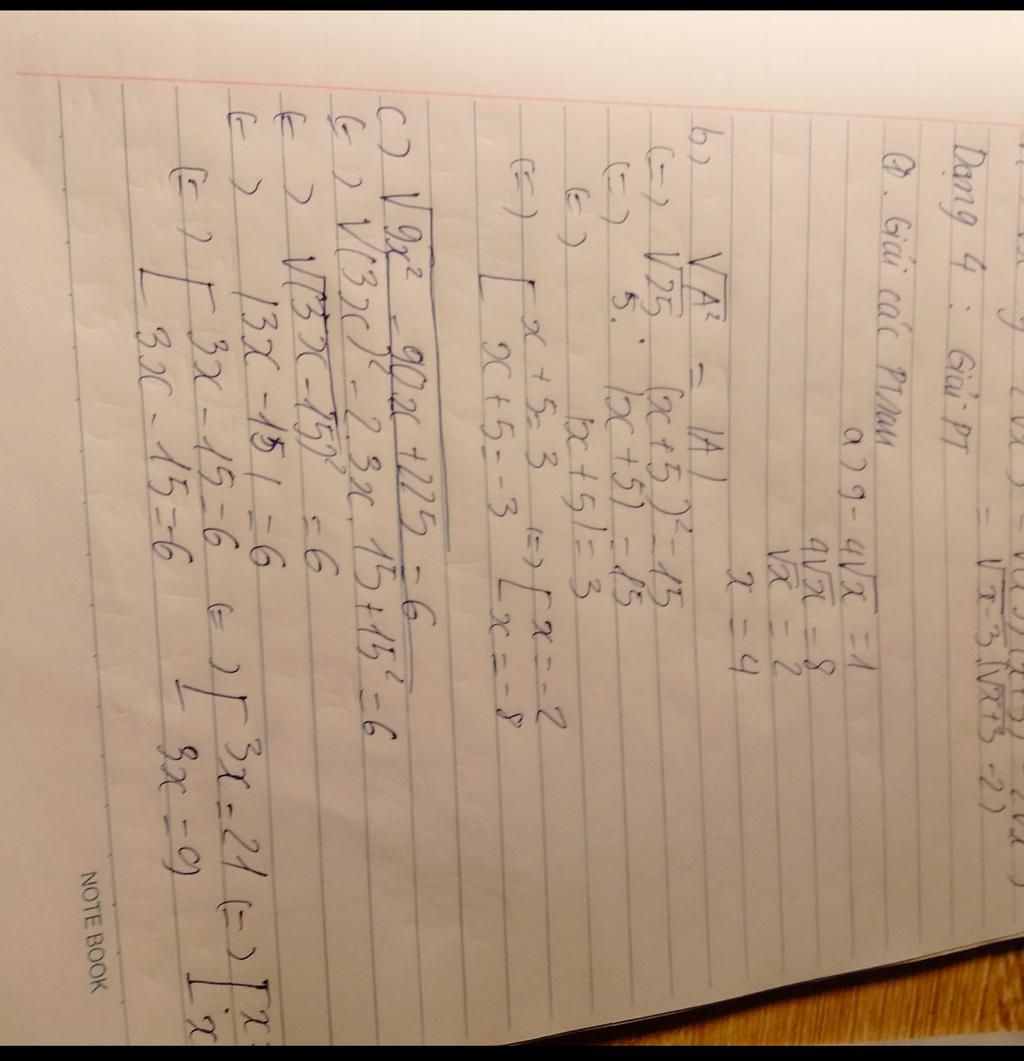 = √x-3 (√x+3 - 2)
Dạng 4 : Giải PT
Giải các
a) 9 - 4√x = 1
4√x = 8
√x = 2
x = 4
b) √A² = |A|
(=) √25 (x+5)² = 15
(=) 5. |x+5| = 15
(=) |x+5| = 3
(=) [ x+5=3 (=) [ x = -2
[ x+5=-3 [ x = -8
c) √9x² - 90x + 225 = 6
(=) √(3x)² - 2.3x.15 + 15² = 6
(=) √(3x-15)² = 6
(=) |3x-15| = 6
(=) [ 3x-15=6 (=) [ 3x=21 (=) [ x
[ 3x-15=-6 [ 3x=9 [ x
NOTE BOOK